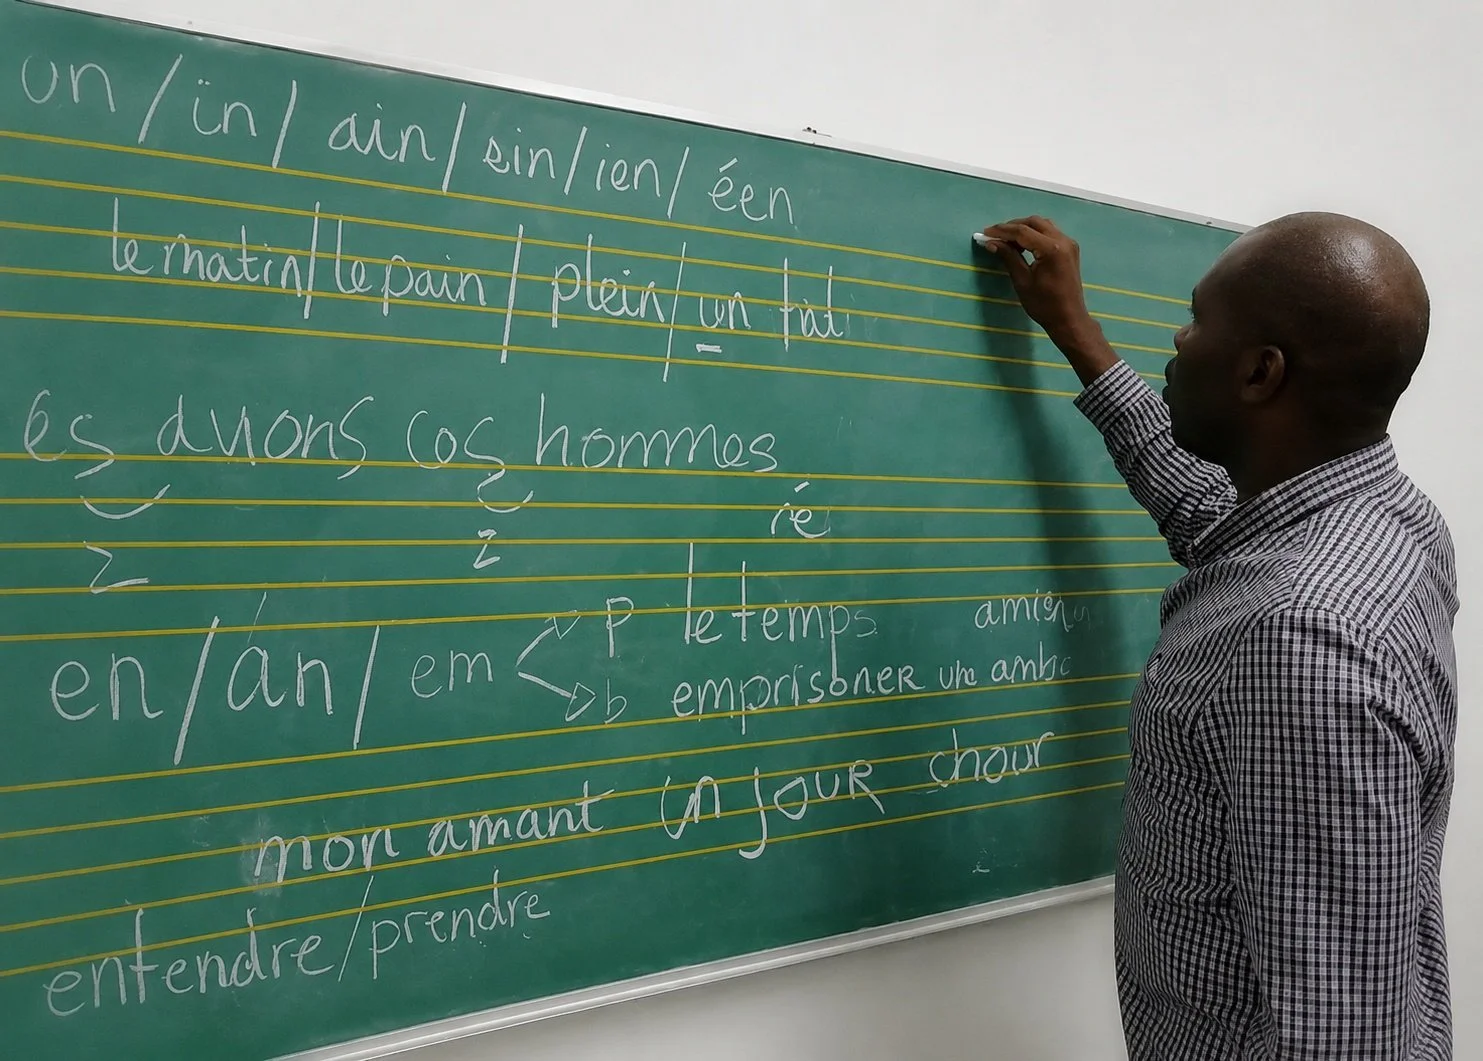 un / ïn / ain / ein / ien / éen
le matin / le pain / plein / un
és avions cos hommes
z z
ré
en / an / em p le temps
b emprisoner une
mon amant un jour chour
entendre / prendre